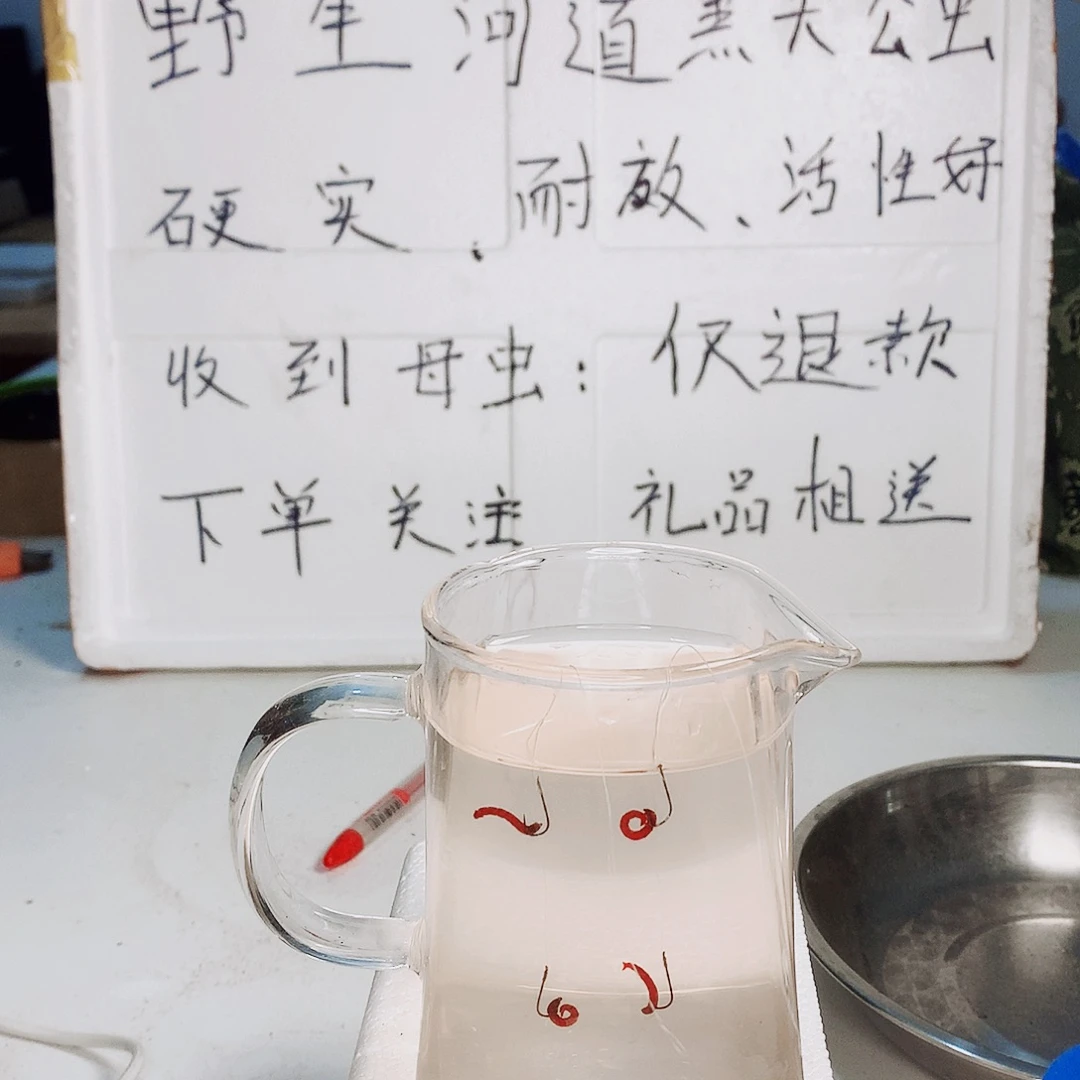 野生河道黑头公虫
硬实、耐放、活性好
收到母虫:仅退款
下单关注 礼品相送